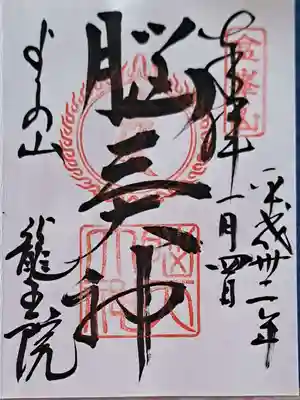 金峯山
奉拝
平成卅二年
一月四日
脳天大神
脳天大神
よしの山
龍王院